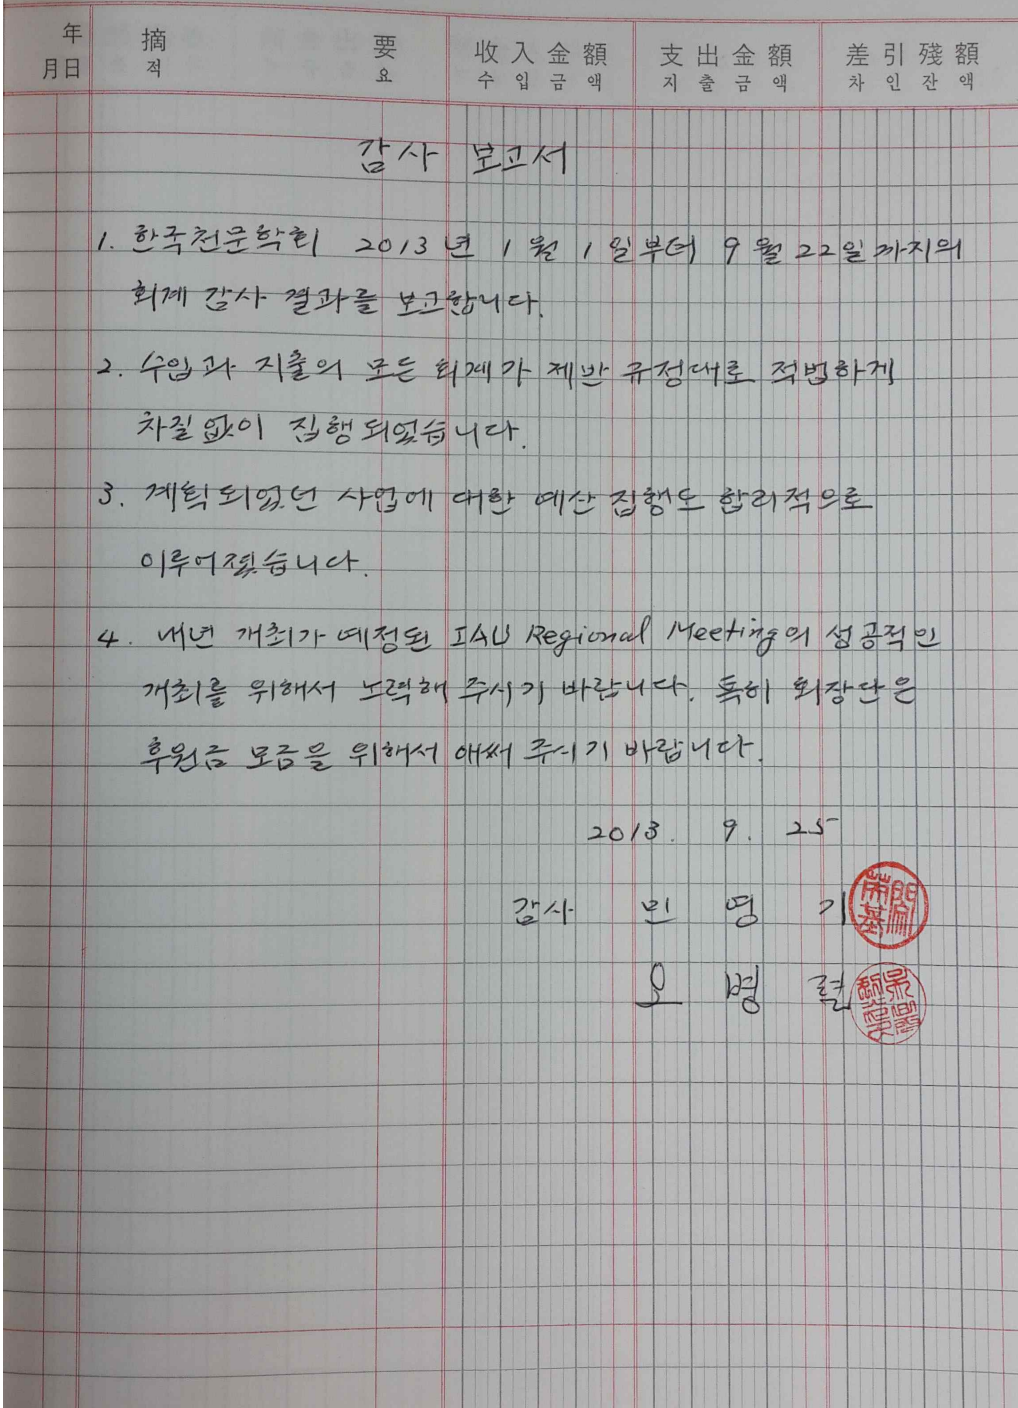 年 摘 要 收入金額 支出金額 差引殘額
月日 적 요 수입금액 지출금액 차인잔액
감사 보고서
1. 한국천문학회 2013년 1월 1일부터 9월 22일까지의
회계 감사 결과를 보고합니다.
2. 수입과 지출의 모든 회계가 제반 규정대로 적법하게
차질없이 집행되었습니다.
3. 계획되었던 사업에 대한 예산 집행도 합리적으로
이루어졌습니다.
4. 내년 개최가 예정된 IAU Regional Meeting의 성공적인
개최를 위해서 노력해 주시기 바랍니다. 특히 회장단은
후원금 모금을 위해서 애써 주시기 바랍니다.
2013. 9. 25
감사 민 영 기
오 병 렬